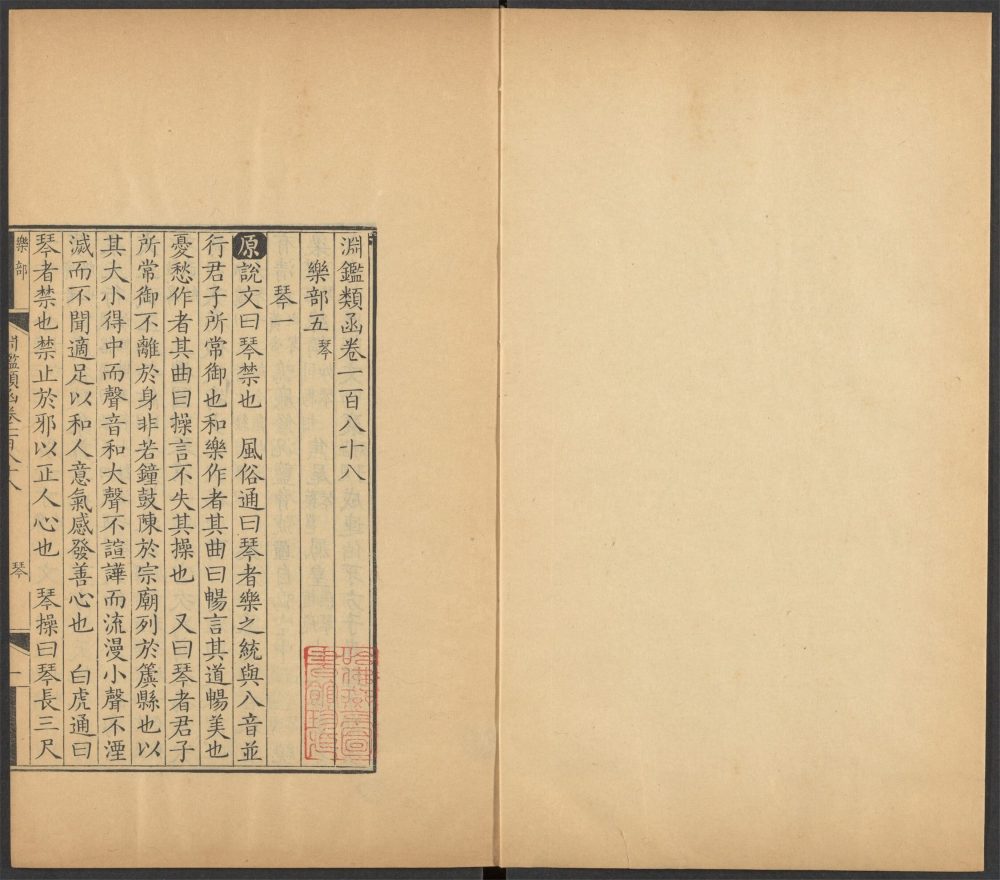 淵鑑類函卷一百八十八
樂部五 琴
琴一
原 說文曰琴禁也 風俗通曰琴者樂之統與八音並
行君子所常御也和樂作者其曲曰暢言其道暢美也
憂愁作者其曲曰操言不失其操也 又曰琴者君子
所常御不離於身非若鐘鼓陳於宗廟列於簴縣也以
其大小得中而聲音和大聲不諠譁而流漫小聲不湮
滅而不聞適足以和人意氣感發善心也 白虎通曰
琴者禁也禁止於邪以正人心也 琴操曰琴長三尺
樂部 淵鑑類函卷一百八十八 琴 一